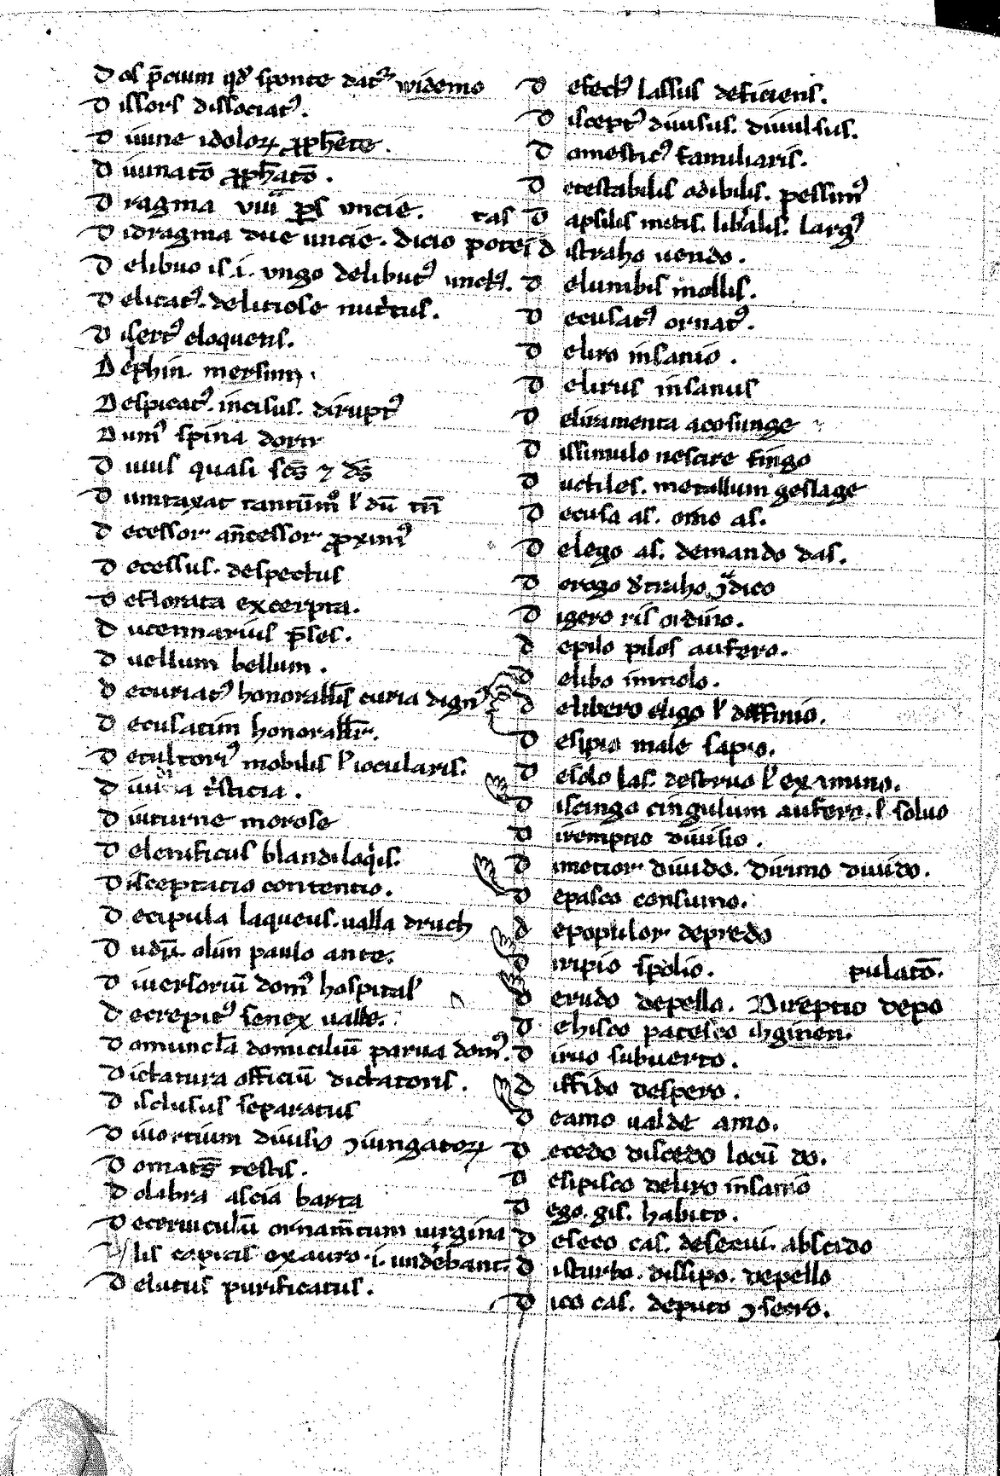 Dos p̄cium qd' sponte dat᷑ widemo
Dissors dissociatꝰ.
Diuine idoloꝝ ꝓph̄ete.
Diuinatō ꝓph̄atō.
Dragma viii ꝑs vncie.
Didragma due vncie. Dicio potestas
Delibuo is .i. vngo delibutꝰ vnctꝰ.
Delicatꝰ. deliciose nut'tus.
Disertꝰ eloquens.
Delphin mersuin.
Despicatꝰ. incisus. diruptꝰ
Dumꝰ spina dorn
Diuus quasi sc̄s ⁊ d's
Dumtaxat tantūmō l' dū tn̄
Decessor an̄cessor ꝓximꝰ
Decessus. despectus
Deflorata excerpta.
Ducennarius p̄ses.
Duellum bellum.
Decuriatꝰ honorabl'is curia dignꝰ
Decusatim honorabl'r.
mobilis l' iocularis.
Diuturne morose
Delenificus blandiloq's.
Disceptacio contentio.
Decipula laqueus. ualla druch
Dudū. olim paulo ante.
Diuersoriū domꝰ hospital'
Decrepitꝰ senex ualde.
Domuncl'a domiciliū parua domꝰ.
Dictatura officiū dictatoris.
Disclusus separatus
Diuortium diuisio ꝯiungatoꝝ
testis.
Dolabra ascia barta
Decerniculū ornam̄tum uirgina
lis capitis ex auro .i. vnderbant.
Delutus purificatus.
Defectꝰ lassus deficiens.
Disceptꝰ diuisus. diuulsus.
Domesticꝰ familiaris.
Detestabilis odibilis. pessimꝰ
Dapsilis mitis. lib'alis. largꝰ
Distraho uendo.
Delumbis mollis.
Decusatꝰ ornatꝰ.
Deliro insanio.
Delirus insanus
Deliramenta acosunge
Dissimulo nescire fingo
Ductiles. metallum geslage
Decuso as. orno as.
Delego as. demando das.
Derogo det'raho ꝯ̄dico
Digero ris ordino.
Depilo pilos aufero.
Delibo immolo.
Delibero eligo l' diffinio.
Desipio male sapio.
Desolo las. destruo l' examino.
Discingo cingulum aufero. l' soluo
Diremptio diuisio.
Dimetior diuido. Dirimo diuido.
Depasco consumo.
Depopulor depredo
Diripio spolio. pulatō.
Detrudo depello. Direptio depo
Dehisco patesco ih'ginen.
Diruo subuerto.
Diffido despero.
Deamo ualde amo.
Decedo discedo locū do.
Desipisco deliro insanio
Dego. gis. habito.
Deseco cas. desecui. abscido
Disturbo. dissipo. depello
Dico cas. deputo ꝯsecro.